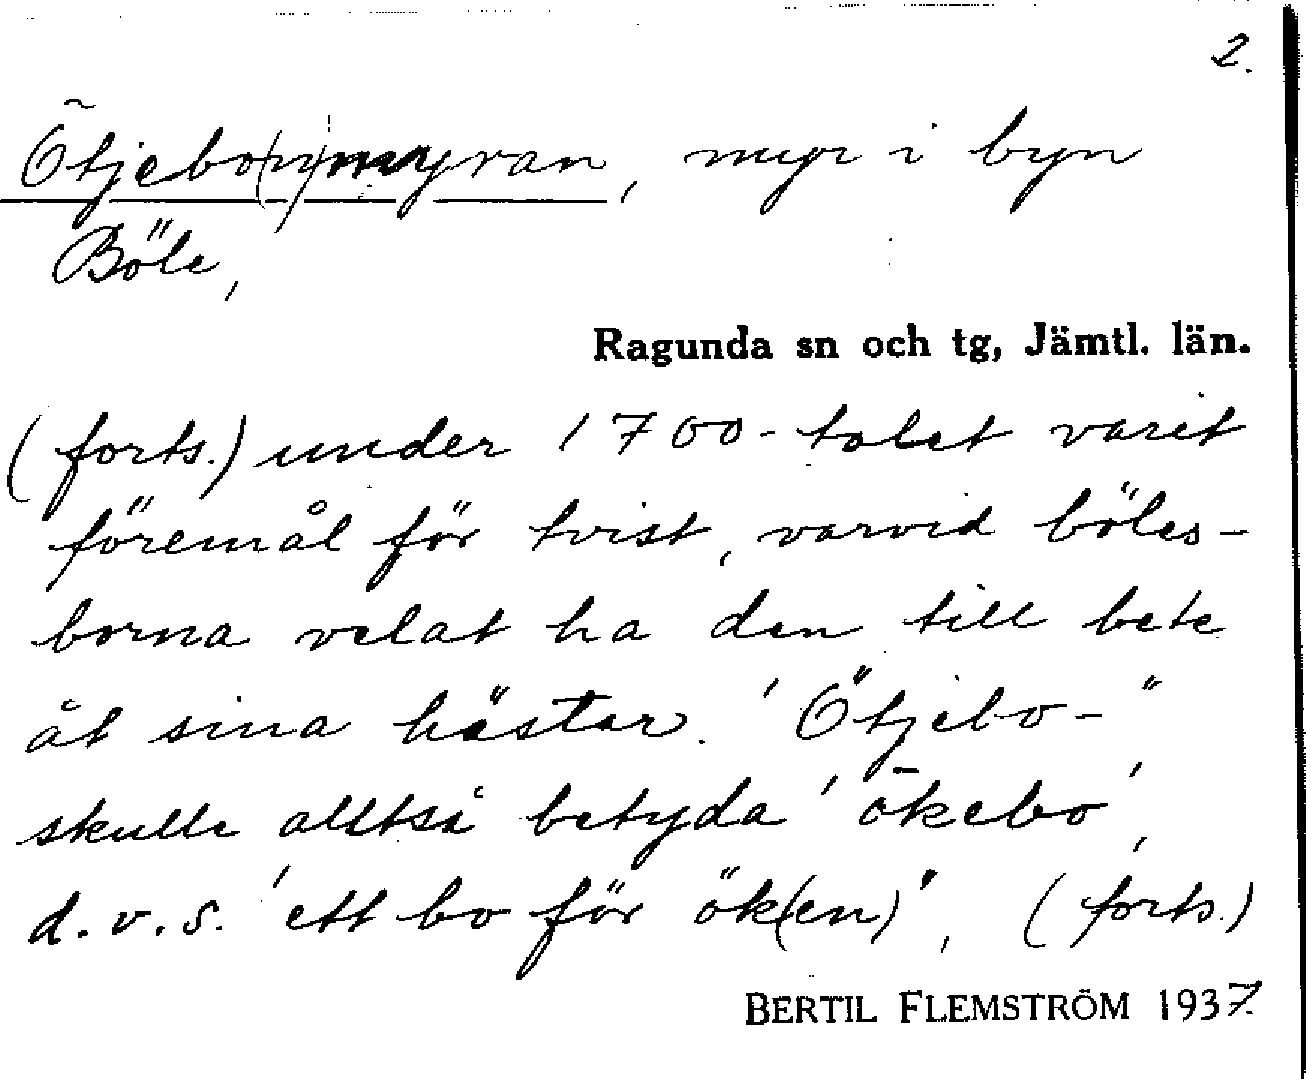 2.
Ötjebo(n)myran, myr i byn
Böle,
Ragunda sn och tg, Jämtl. län.
(forts.) under 1700-talet varit
föremål för tvist, varvid böles-
borna velat ha den till bete
åt sina hästar. 'Ötjebo-"
skulle alltså betyda 'ökebo',
d.v.s. 'ett bo för ök(en)', (forts.)
BERTIL FLEMSTRÖM 1937.